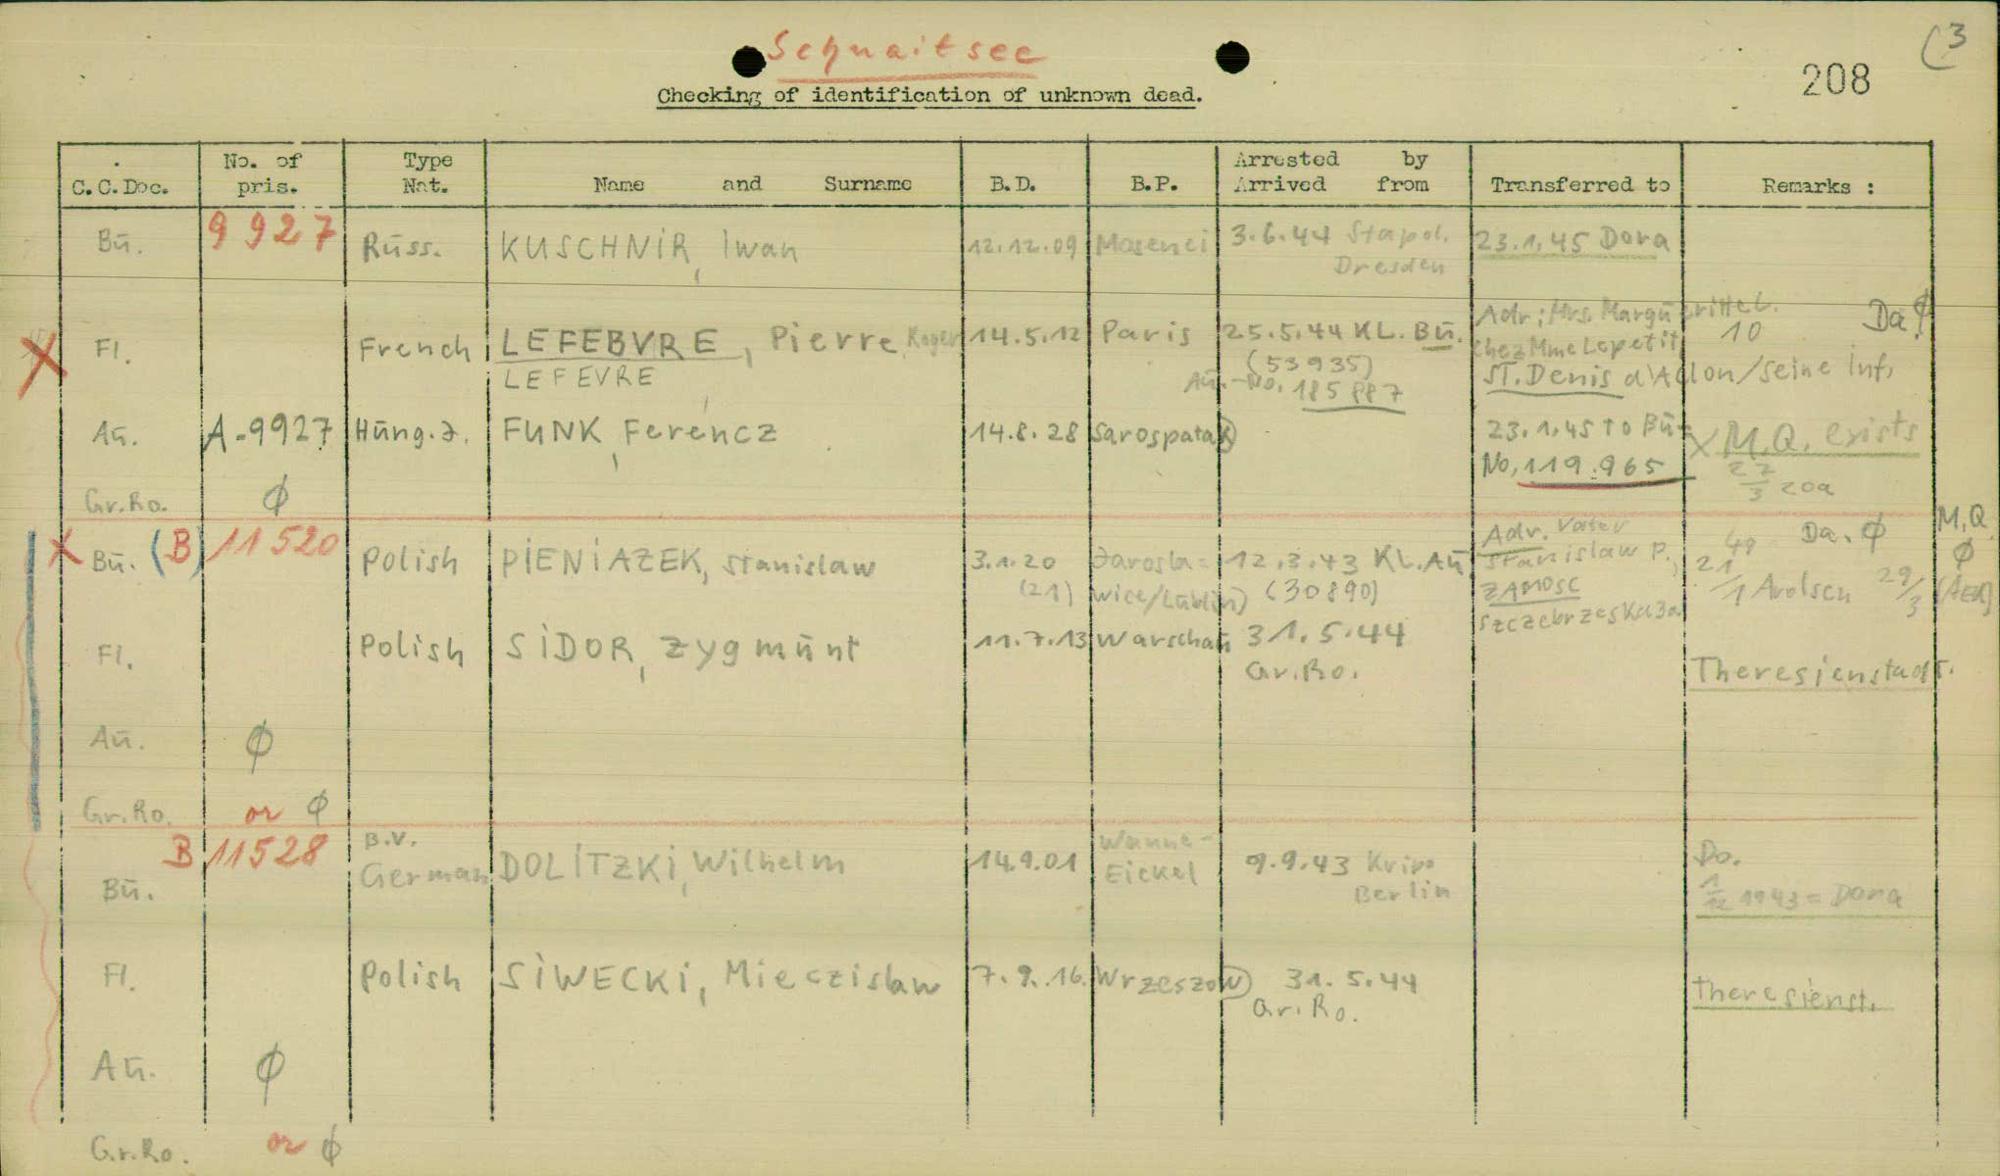 Schnaitsee
(3
208
Checking of identification of unknown dead.
C.C.Doc. No. of pris. Type Nat. Name and Surname B.D. B.P. Arrested by Arrived from Transferred to Remarks :
Bū. 9927 Rūss. KUSCHNIR, Iwan 12.12.09 3.6.44 Stapol. 23.1.45 Dora
Dresden
Fl. French LEFEBVRE, Pierre Roger 14.5.12 Paris 25.5.44 KL. Bū. Adr: Mrs. Margūerittel. 10 Da ϕ
LEFEVRE (53935) chez Mme Lepetit
Aū.-No. 185887 ST. Denis d'Acllon/Seine Inf.
Aū. A-9927 Hūng.J. FUNK, Ferencz 14.8.28 Sarospatak) 23.1.45 to Bū- X M.Q. exists
No, 119.965 27/3 20a
Gr.Ro. ϕ
X Bū. (B) 11520 Polish PIENIAZEK, Stanislaw 3.1.20 Jarosla= 12.3.43 KL. Aū Adr. Vater 49 Da. ϕ M.Q.
(21) wice/Lūblin) (30890) Stanislaw P., 21/1 Arolsen 29/3 ϕ (AEK)
ZAMOSC
Szczebrzeska 3a
Fl. Polish SIDOR, Zygmūnt 11.7.13 Warschaū 31.5.44
Gr.Ro. Theresienstadt.
Aū. ϕ
Gr.Ro. or ϕ
B 11528 B.V. Wanne-
Bū. German DOLITZKI, Wilhelm 14.9.01 Eickel 9.9.43 Kripo Do.
Berlin 1/12 1943 = Dora
Fl. Polish SIWECKI, Mieczislaw 7.9.16. Wrzeszow) 31.5.44 Theresienst.
Gr.Ro.
Aū. ϕ
Gr.Ro. or ϕ